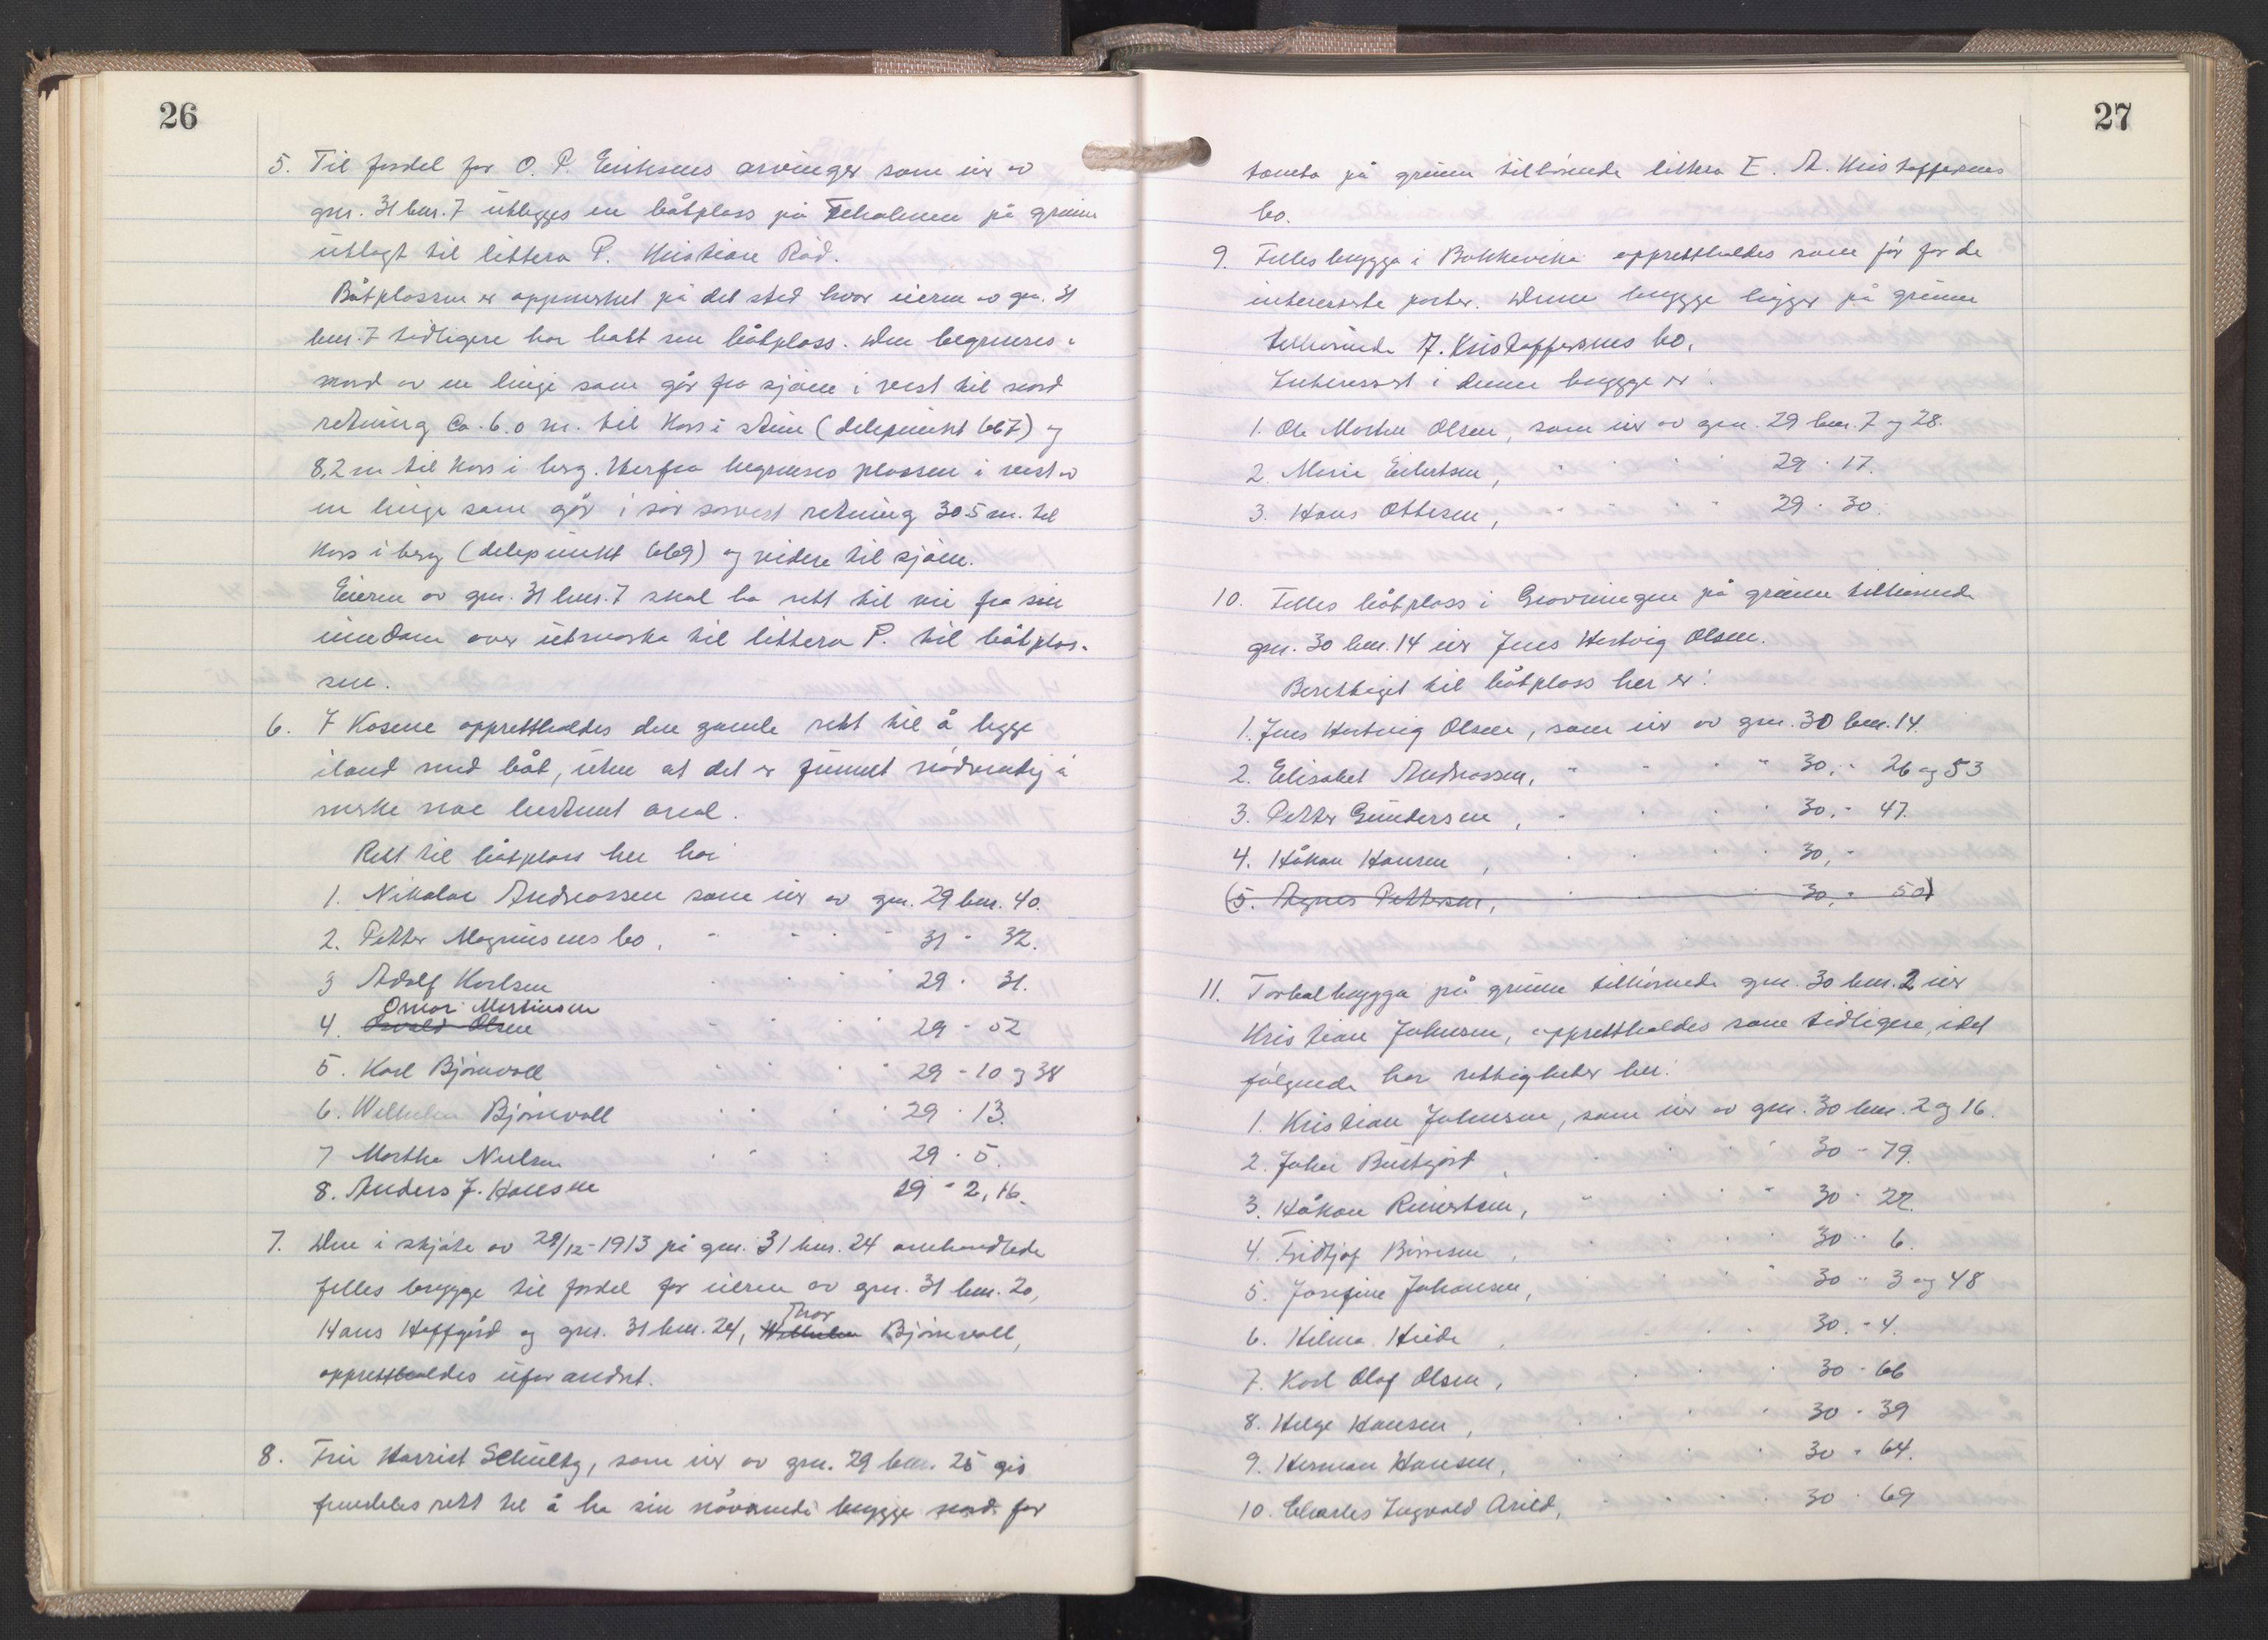 26
5. Til fordel for O. P. Eriksens arvinger som eier av
gnr. 31 bnr. 7 utlegges en båtplass på på grunn
utlagt til littera P. Kristian Råd.
Båtplassen er oppmerket på det sted hvor eieren av gnr. 31
bnr. 7 tidligere har hatt sin båtplass. Den begrenses i
nord av en linje som går fra sjøen i vest til nord
retning ca. 6.0 m. til kors i stein (delepunkt 667) og
8,2 m til kors i berg. Herfra begrenses plassen i vest av
en linje som går i sør sørvest retning 30.5 m. til
kors i berg (delepunkt 669) og videre til sjøen.
Eieren av gnr. 31 bnr. 7 skal ha rett til vei fra sin
eiendom over utmarka til littera P. til båtplas-
sen.
6. I Kosene opprettholdes den gamle rett til å legge
iland med båt, uten at det er funnet nødvendig å
merke noe bestemt areal.
Rett til båtplass her har
1. Nikolai Andreassen som eier av gnr. 29 bnr. 40.
2. Petter Magnusens bo, " " " " 31 " 32.
3 Adolf Karlsen " " " " 29 " 31.
Omar Martinsen
4. Osvald Olsen " " " " 29 " 52
5. Karl Bjørnvoll " " " " 29 " 10 og 38
6. Wilhelm Bjørnvoll " " " " 29 " 13.
7 Marthe Nielsen " " " 29 " 5.
8. Anders J. Hansen 29 " 2, 16.
7. Den i skjøte av 28/12-1913 på gnr. 31 bnr. 24 omhandlede
felles brygge til fordel for eieren av gnr. 31 bnr. 20,
Thor
Hans Hoffgård og gnr. 31 bnr. 24, Wilhelm Bjørnvoll,
opprettholdes uforandret.
8. Fru Harriet Schultz, som eier av gnr. 29 bnr. 25 gis
fremdeles rett til å ha sin nåværende brygge nord for
27
tomta på grunn tilhørende littera E. A. Kristoffersens
bo.
9. Fellesbrygga i Bakkevika opprettholdes som før for de
interesserte parter. Denne brygge ligger på grunn
tilhørende J. Kristoffersens bo.
Interessert i denne brygge er:
1. Ole Morten Olsen, som eier av gnr. 29 bnr. 7 og 28.
2. Marie Eilertsen, " " " " 29 " 17.
3. Hans Ottesen, " " " " 29 " 30.
10. Felles båtplass i på grunn tilhørende
gnr. 30 bnr. 14 eier Jens Hertvig Olsen.
Berettiget til båtplass her er:
1. Jens Hertvig Olsen, som eier av gnr. 30 bnr. 14.
2. Elisabet Andreassen, " " " " 30, " 26 og 53
3. Petter Gundersen, " " " 30, " 47.
4. Håkon Hansen, " " " 30, "
(5. Agnes Pettersen, " " " 30, " 50)
11. brygga på grunn tilhørende gnr. 30 bnr. 2 eier
Kristian Johnsen, opprettholdes som tidligere, idet
følgende har rettigheter her:
1. Kristian Johnsen, som eier av gnr. 30 bnr. 2 og 16.
2. Johan , " " " " 30 " 79.
3. Håkon Reinertsen, " " " " 30 " 22.
4. Fridtjof , " " " 30 " 6.
5. Josefine Johansen, " " " 30 " 3 og 48
6. Hilma , " " 30. " 4.
7. Karl Olaf Olsen, " " " 30 " 66
8. Helge Hansen, " " " " 30 " 39
9. Herman Hansen, " " " " 30 " 64.
10. Charles Ingvald Arild, " " " " 30 " 69